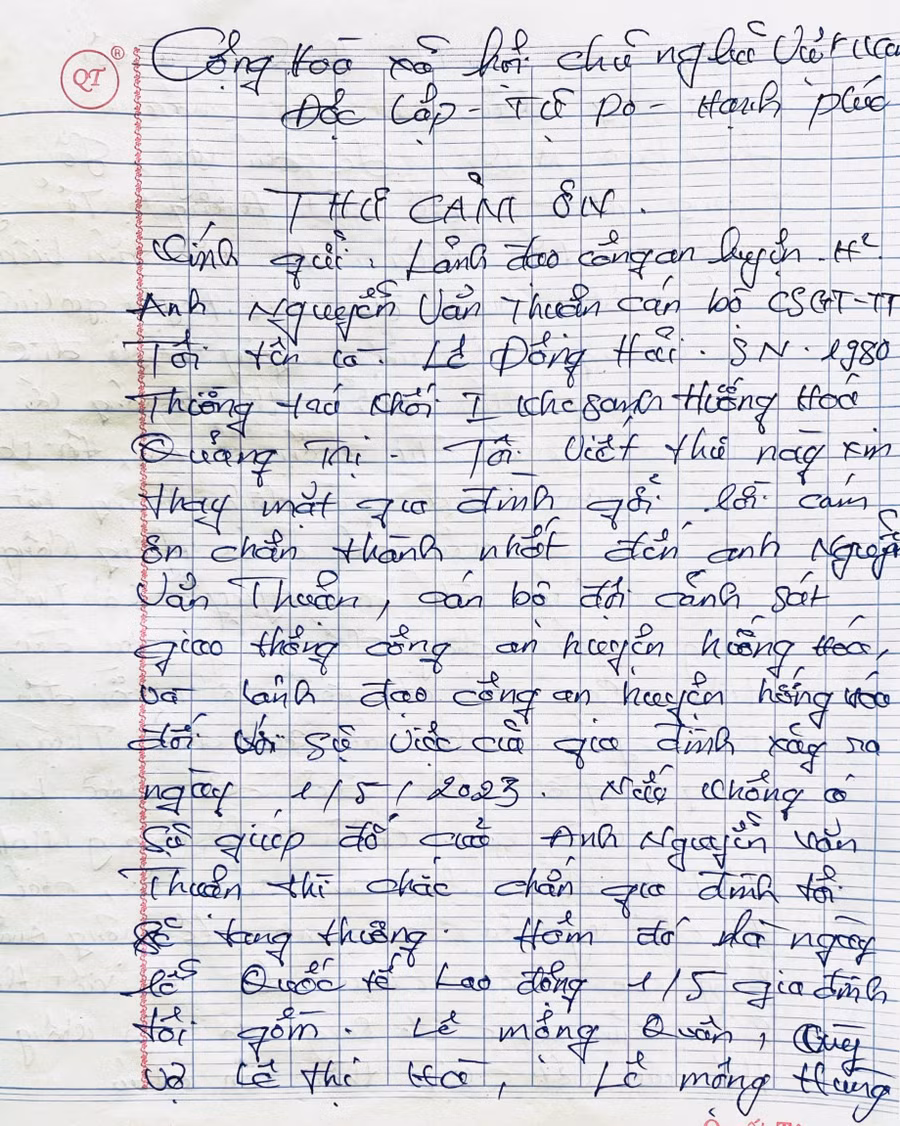 QT ®
Cộng Hoà xã hội chủ nghĩa Việt Na
Độc Lập - Tự Do - Hạnh phúc
THƯ CẢM ƠN.
Kính gửi. Lãnh đạo công an huyện. H²
Anh Nguyễn Văn Thuần cán bộ CSGT-TT
Tôi tên là. Lê Đồng Hải. SN. 1980
Thường trú khối I Khe sanh Hướng Hoá
Quảng Trị - Tôi viết thư này xin
thay mặt gia đình gởi lời cám
ơn chân thành nhất đến anh Nguyễn
Văn Thuần, cán bộ đội cảnh sát
giao thông công an huyện hướng Hoá,
và lãnh đạo công an huyện hướng hóa
đối với sự việc của gia đình xảy ra
ngày 1/5/2023. Nếu không có
sự giúp đỡ của Anh Nguyễn văn
Thuần thì chắc chắn gia đình tôi
sẽ tang thương. Hôm đó là ngày
lễ Quốc tế Lao động 1/5 gia đình
tôi gồm. Lê mông Quân, Cùng
vợ Lê thị Hoà, Lê mông Hùng